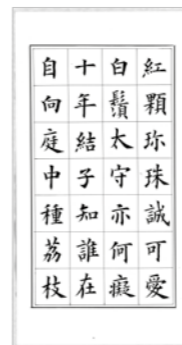 紅顆珎珠誠可愛
白鬚太守亦何癡
十年結子知誰在
自向庭中種荔枝